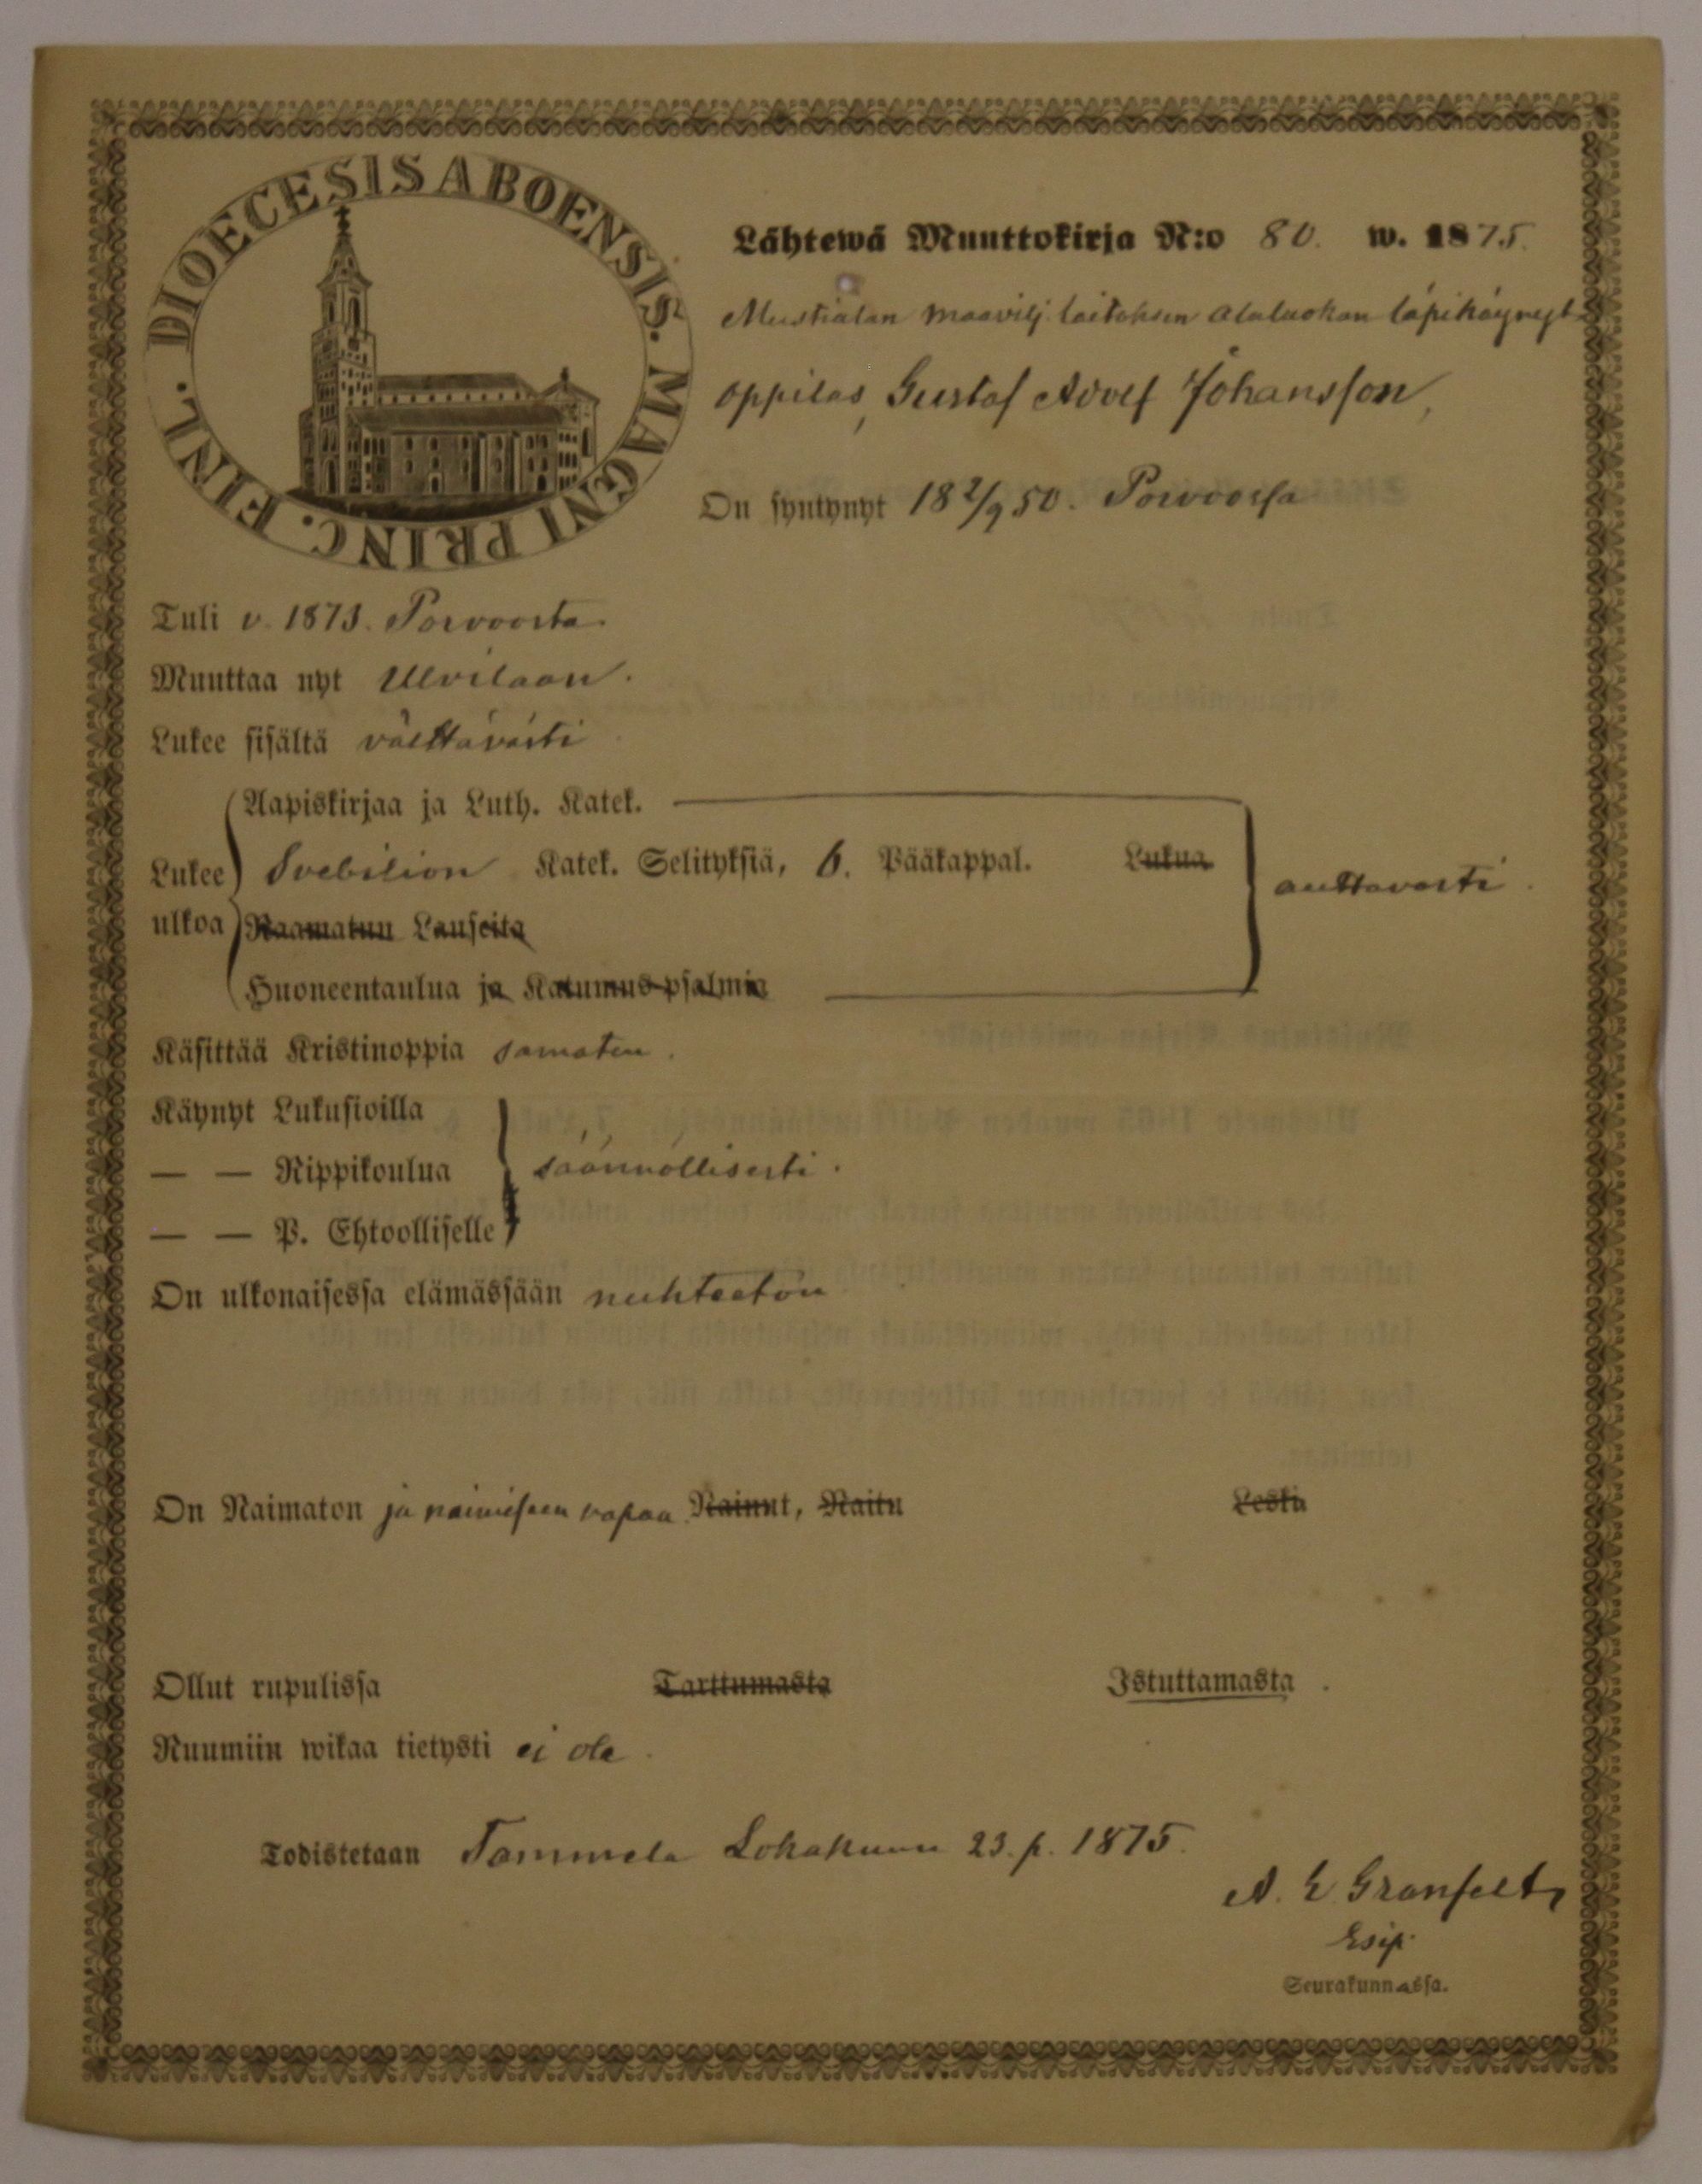 DIOECESIS ABOENSIS. MAGNI PRINC. FINL.
Lähtewä Muuttokirja N:o 80. w. 1875.
Mustialan maavilj. laitoksen alaluokan läpikäynyt
oppilas, Gustaf Adolf Johansson,
On syntynyt 18 2/9 50. Porvoossa
Tuli v. 1873. Porvoosta.
Muuttaa nyt Ulvilaan.
Lukee sisältä välttävästi
Aapiskirjaa ja Luth. Katek.
Lukee Svebilion Katek. Selityksiä, 6. Pääkappal. Lukua auttavasti.
ulkoa Raamatun Lauseita
Huoneentaulua ja Katumus-psalmia
Käsittää Kristinoppia samaten.
Käynyt Lukusioilla
— — Rippikoulua säännöllisesti.
— — P. Ehtoolliselle
On ulkonaisessa elämässään nuhteeton
On Naimaton ja naimiseen vapaa. Nainut, Naitu Leski
Ollut rupulissa Tarttumasta Istuttamasta.
Ruumiin wikaa tietysti ei ole.
Todistetaan Tammela Lokakuun 23. p. 1875.
A. L Granfelt,
Esip.
Seurakunnassa.